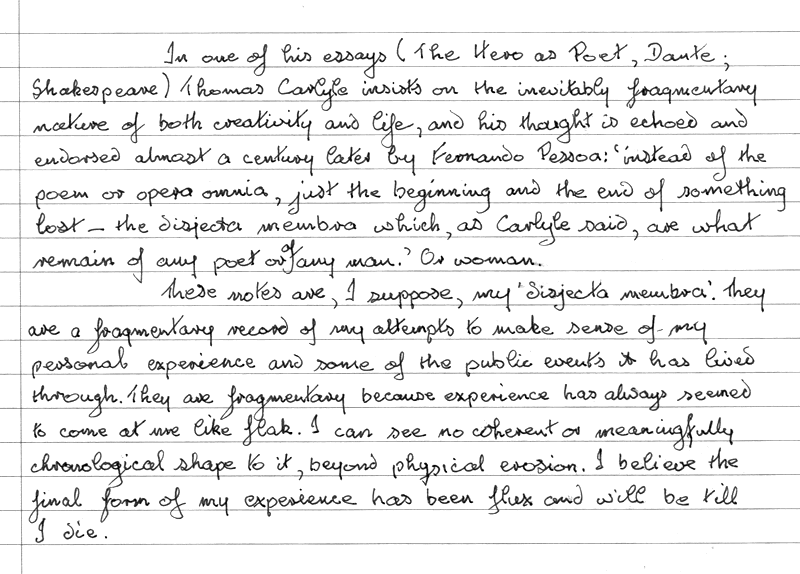 In one of his essays (The Hero as Poet, Dante;
Shakespeare) Thomas Carlyle insists on the inevitably fragmentary
nature of both creativity and life, and his thought is echoed and
endorsed almost a century later by Fernando Pessoa: 'instead of the
poem or opera omnia, just the beginning and the end of something
lost – the disjecta membra which, as Carlyle said, are what
remain of any poet or of any man.' Or woman.
These notes are, I suppose, my 'disjecta membra'. They
are a fragmentary record of my attempts to make sense of my
personal experience and some of the public events it has lived
through. They are fragmentary because experience has always seemed
to come at me like flak. I can see no coherent or meaningfully
chronological shape to it, beyond physical erosion. I believe the
final form of my experience has been flux and will be till
I die.